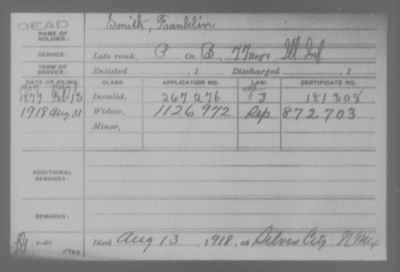 DEAD
NAME OF SOLDIER: Smith, Franklin
SERVICE: Late rank, P Co. B, 77 Reg't Ill Inf
TERM OF SERVICE: Enlisted , 1 Discharged , 1
DATE OF FILING. CLASS. APPLICATION NO. LAW. CERTIFICATE NO.
1879 Feb Invalid, 267 276 J 181 808
1918 Aug 31 Widow, 1126 972 Rep 872 703
Minor,
ADDITIONAL SERVICES:
REMARKS:
Died Aug 13, 1918, at Silver City N Mex